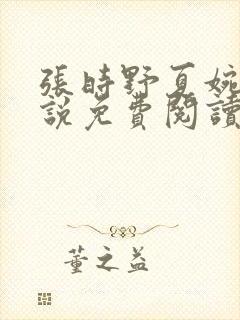 張時野夏婉
說免費閱讀
董之益